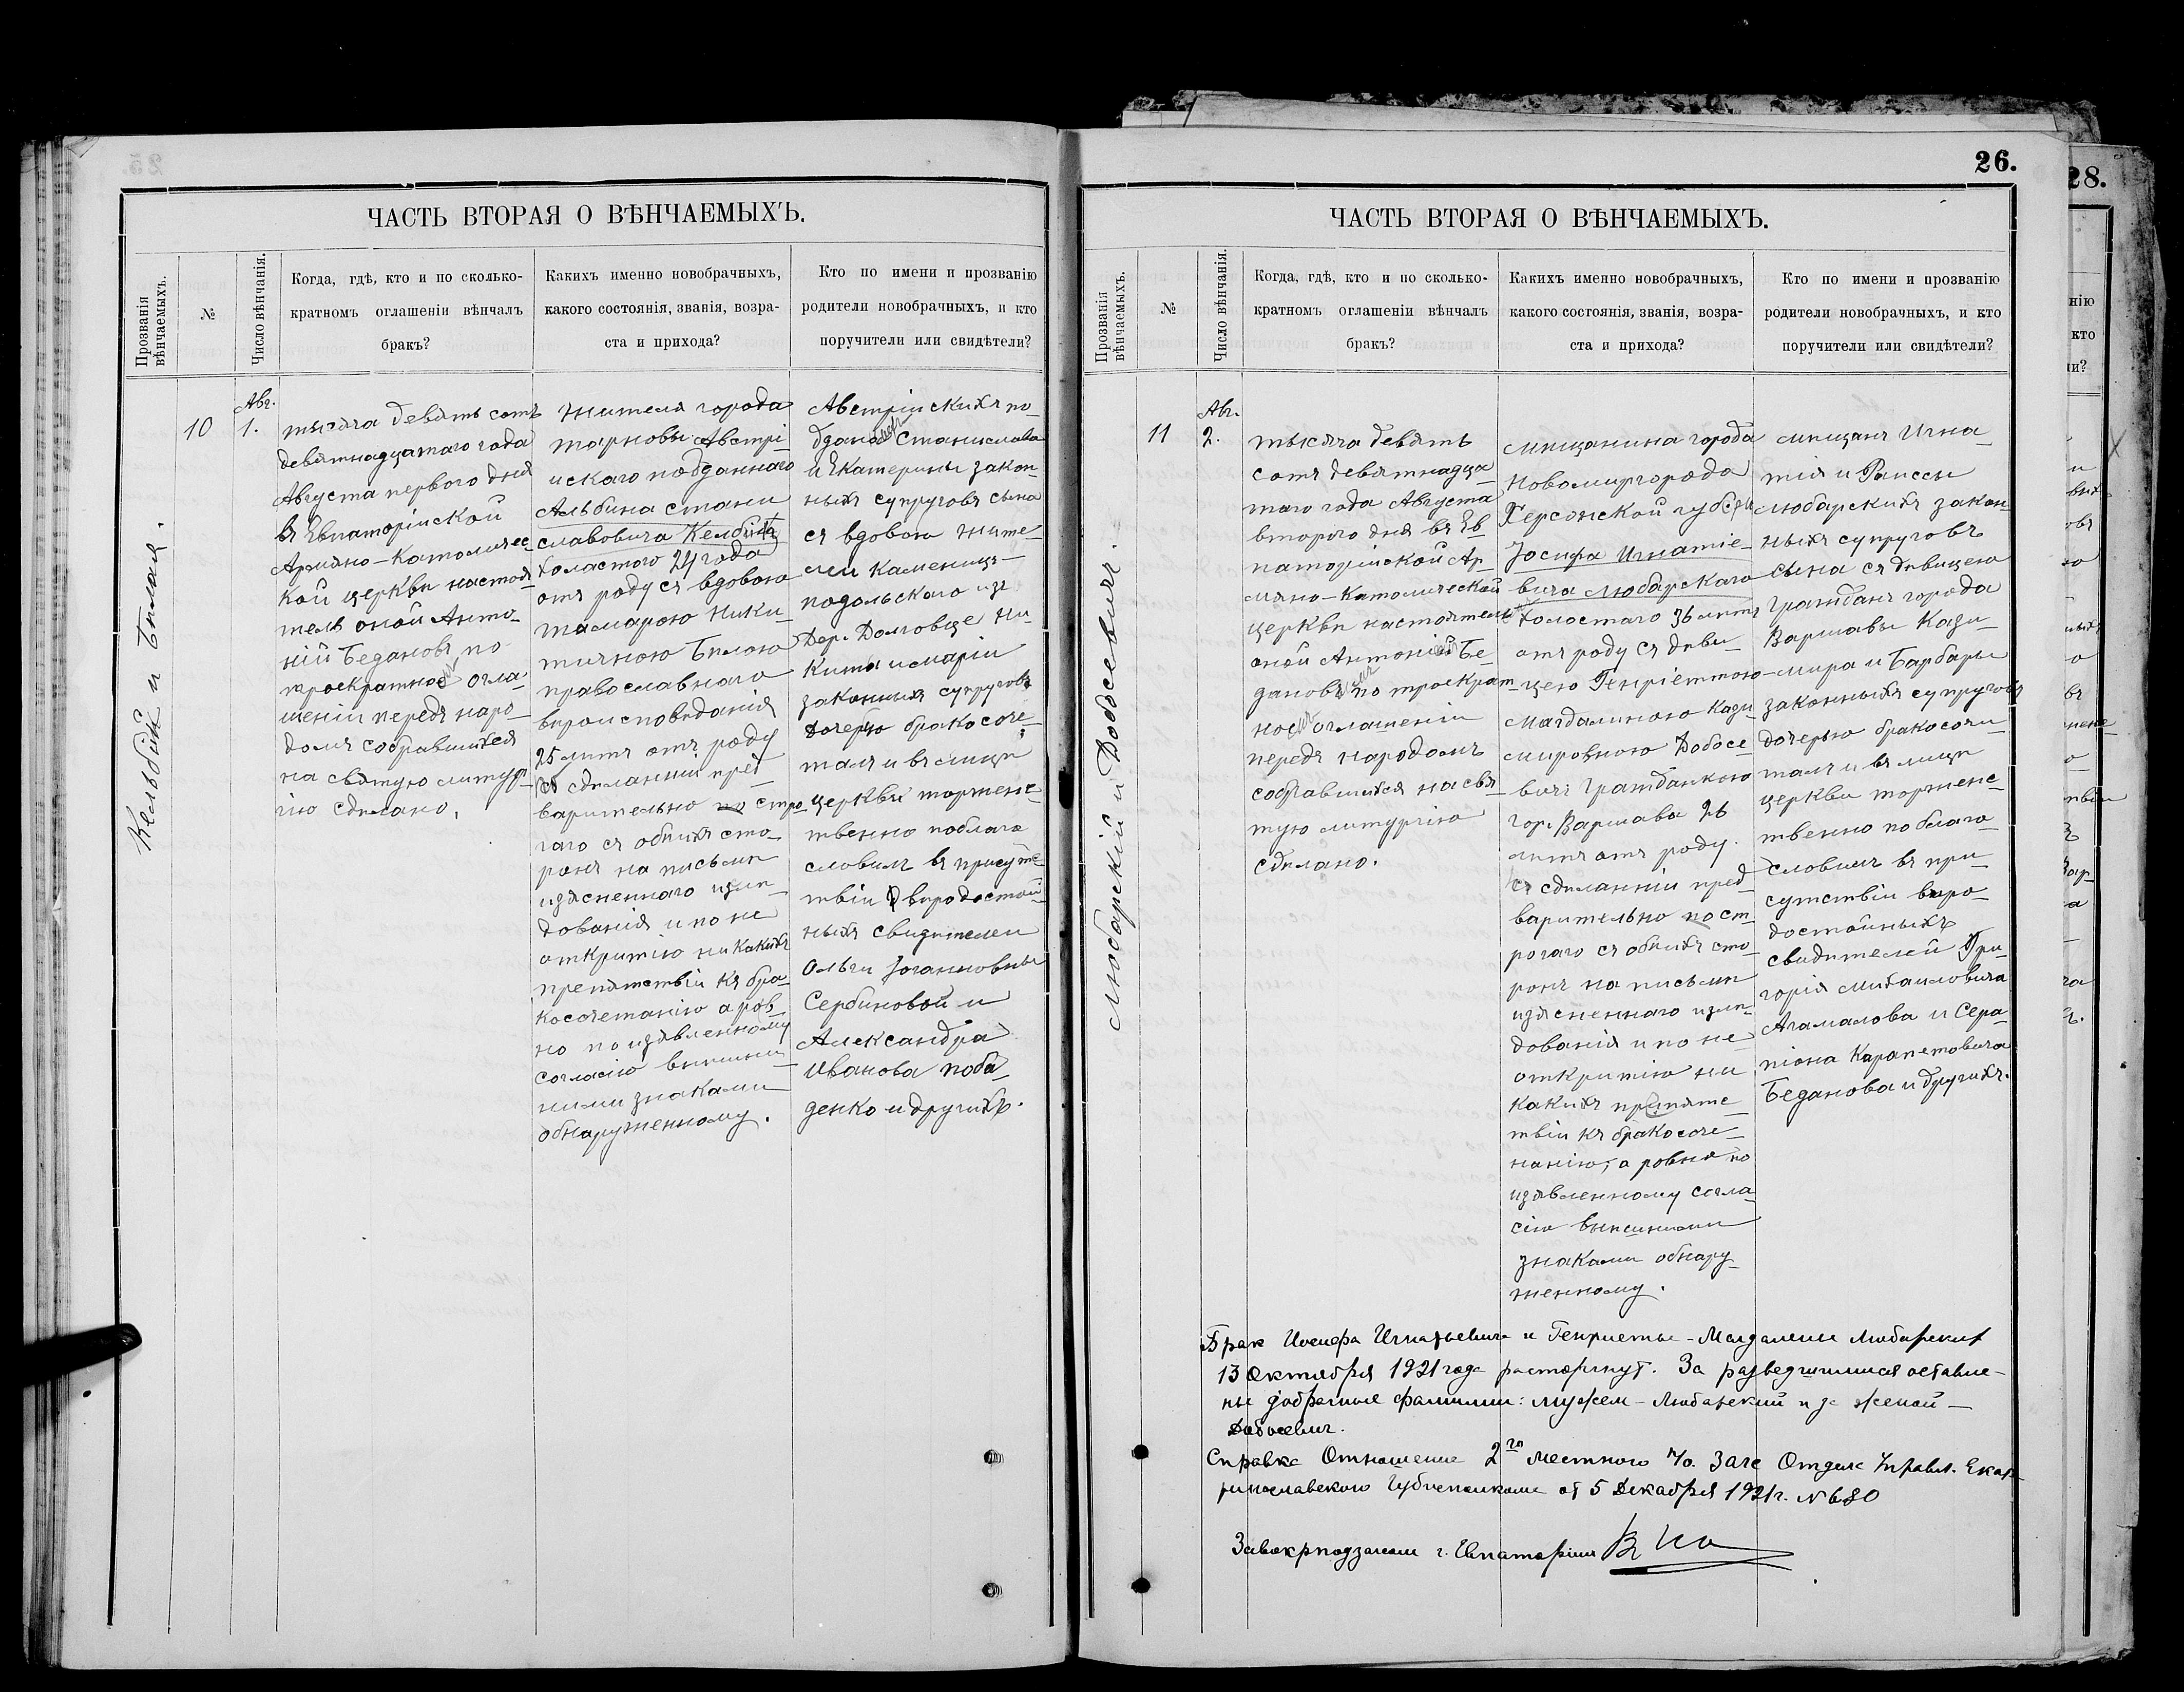 26.
28.
ЧАСТЬ ВТОРАЯ О ВѢНЧАЕМЫХЪ.
Прозванія вѣнчаемыхъ.
№
Число вѣнчанія.
Когда, гдѣ, кто и по сколько-
кратномъ оглашеніи вѣнчалъ
бракъ?
Какихъ именно новобрачныхъ,
какого состоянія, званія, возра-
ста и прихода?
Кто по имени и прозванію
родители новобрачныхъ, и кто
поручители или свидѣтели?
Кельбикъ и Бѣлая.
10
Авг.
1.
тысяча девять сотъ
девятнадцатаго года
Августа перваго дня
въ Евпаторійской
Армяно-Католичес
кой церкви настоя
тель оной Анто-
ній Бедановъ, по
троекратной огла-
шеніи передъ наро-
домъ собравшихся
на святую литур-
гію сдѣлано.
Жителя города
Тарновы Австрі-
искаго подданнаго
Альбина Стани
славовича Келбикъ
холостого 24 года
отъ роду съ вдовою
Тамарою Ники-
тичною Бѣлою
православнаго
вѣроисповѣданія
25 лѣтъ отъ роду
съ сдѣланніи пред
варительно по стро
гаго съ обѣихъ сто-
ронъ на письмѣ
изъясненнаго изслѣ-
дованія и по не
открытію никакихъ
препятствій къ бра-
косочетанію а рав-
но по изъявленному
согласію внѣшни-
ними знаками
обнаруженному.
Австрійскихъ по-
ддана Станислава
и Екатерины закон-
ныхъ супруговъ сына
съ вдовою жите-
лей Каменица-
подольскаго из
Дер. Долговце Ни-
кита и Маріи
законныхъ супруговъ
дочерью бракосоче-
талъ и въ лицѣ
церкви торжес-
твенно поблаго
словилъ въ присутс-
твіи вѣродостой-
ныхъ свидѣтелей
Ольги Іоанновны
Сербиновой и
Александра
Иванова поба-
денко и другихъ.
ЧАСТЬ ВТОРАЯ О ВѢНЧАЕМЫХЪ.
Прозванія вѣнчаемыхъ.
№
Число вѣнчанія.
Когда, гдѣ, кто и по сколько-
кратномъ оглашеніи вѣнчалъ
бракъ?
Какихъ именно новобрачныхъ,
какого состоянія, званія, возра-
ста и прихода?
Кто по имени и прозванію
родители новобрачныхъ, и кто
поручители или свидѣтели?
Любарскій и Добосевичъ.
11
Авг.
2.
тысяча девять
сотъ девятнадца
таго года Августа
второго дня въ Ев
паторійской Ар
мяно-Католической
церкви настоятель
оной Антоній Бе-
дановъ по троекрат-
ной оглашеніи
передъ народомъ
собравшихся на свя-
тую литургію
сдѣлано.
мѣщанина города
Новомиргорода
Херсонской губерн
Іосифа Игнатіе-
вича Любарскаго
холостаго 36 лѣтъ
отъ роду съ дѣви-
цею Генріеттою-
Магдалиною Кази
мировною Добосе
вичъ гражданкою
гор. Варшава 26
лѣтъ отъ роду.
съ сдѣланніи пред-
варительно по ст-
рогаго съ обѣихъ сто-
ронъ на письмѣ
изъясненнаго изслѣ-
дованія и по не-
открытію ни
какихъ препятс-
твіи къ бракосоче-
нанію, а ровно по
изъявленному согла-
сію внѣшними
знаками обнару-
женному.
мѣщанъ Игна-
тія и Раиссы
Любарскихъ закон-
ныхъ супруговъ
сына съ дѣвицею
гражданъ города
Варшавы Кази-
мира и Барбары
законныхъ супруговъ
дочерью бракосоче-
талъ и въ лицѣ
церкви торжес-
твенно поблаго-
словилъ въ при-
сутствіи вѣро-
достойныхъ
свидѣтелей Гри-
горія Михаиловича
Агамалова и Сера-
піона Карапетовича
Беданова и другихъ.
Брак Иосифа Игнатьевича и Генриетты-Магдалены Любарских
13 Октября 1921 года расторгнут. За разведшимися оставле-
ны добрачные фамилии: мужем - Любарский и за женой -
Добосевич.
Справка Отношение 2го местного п/о. Загс Отдела Управл. Екат-
ринославского Губисполкома от 5 Декабря 1921 г. № 680
Завокрподзагсом г. Евпатории